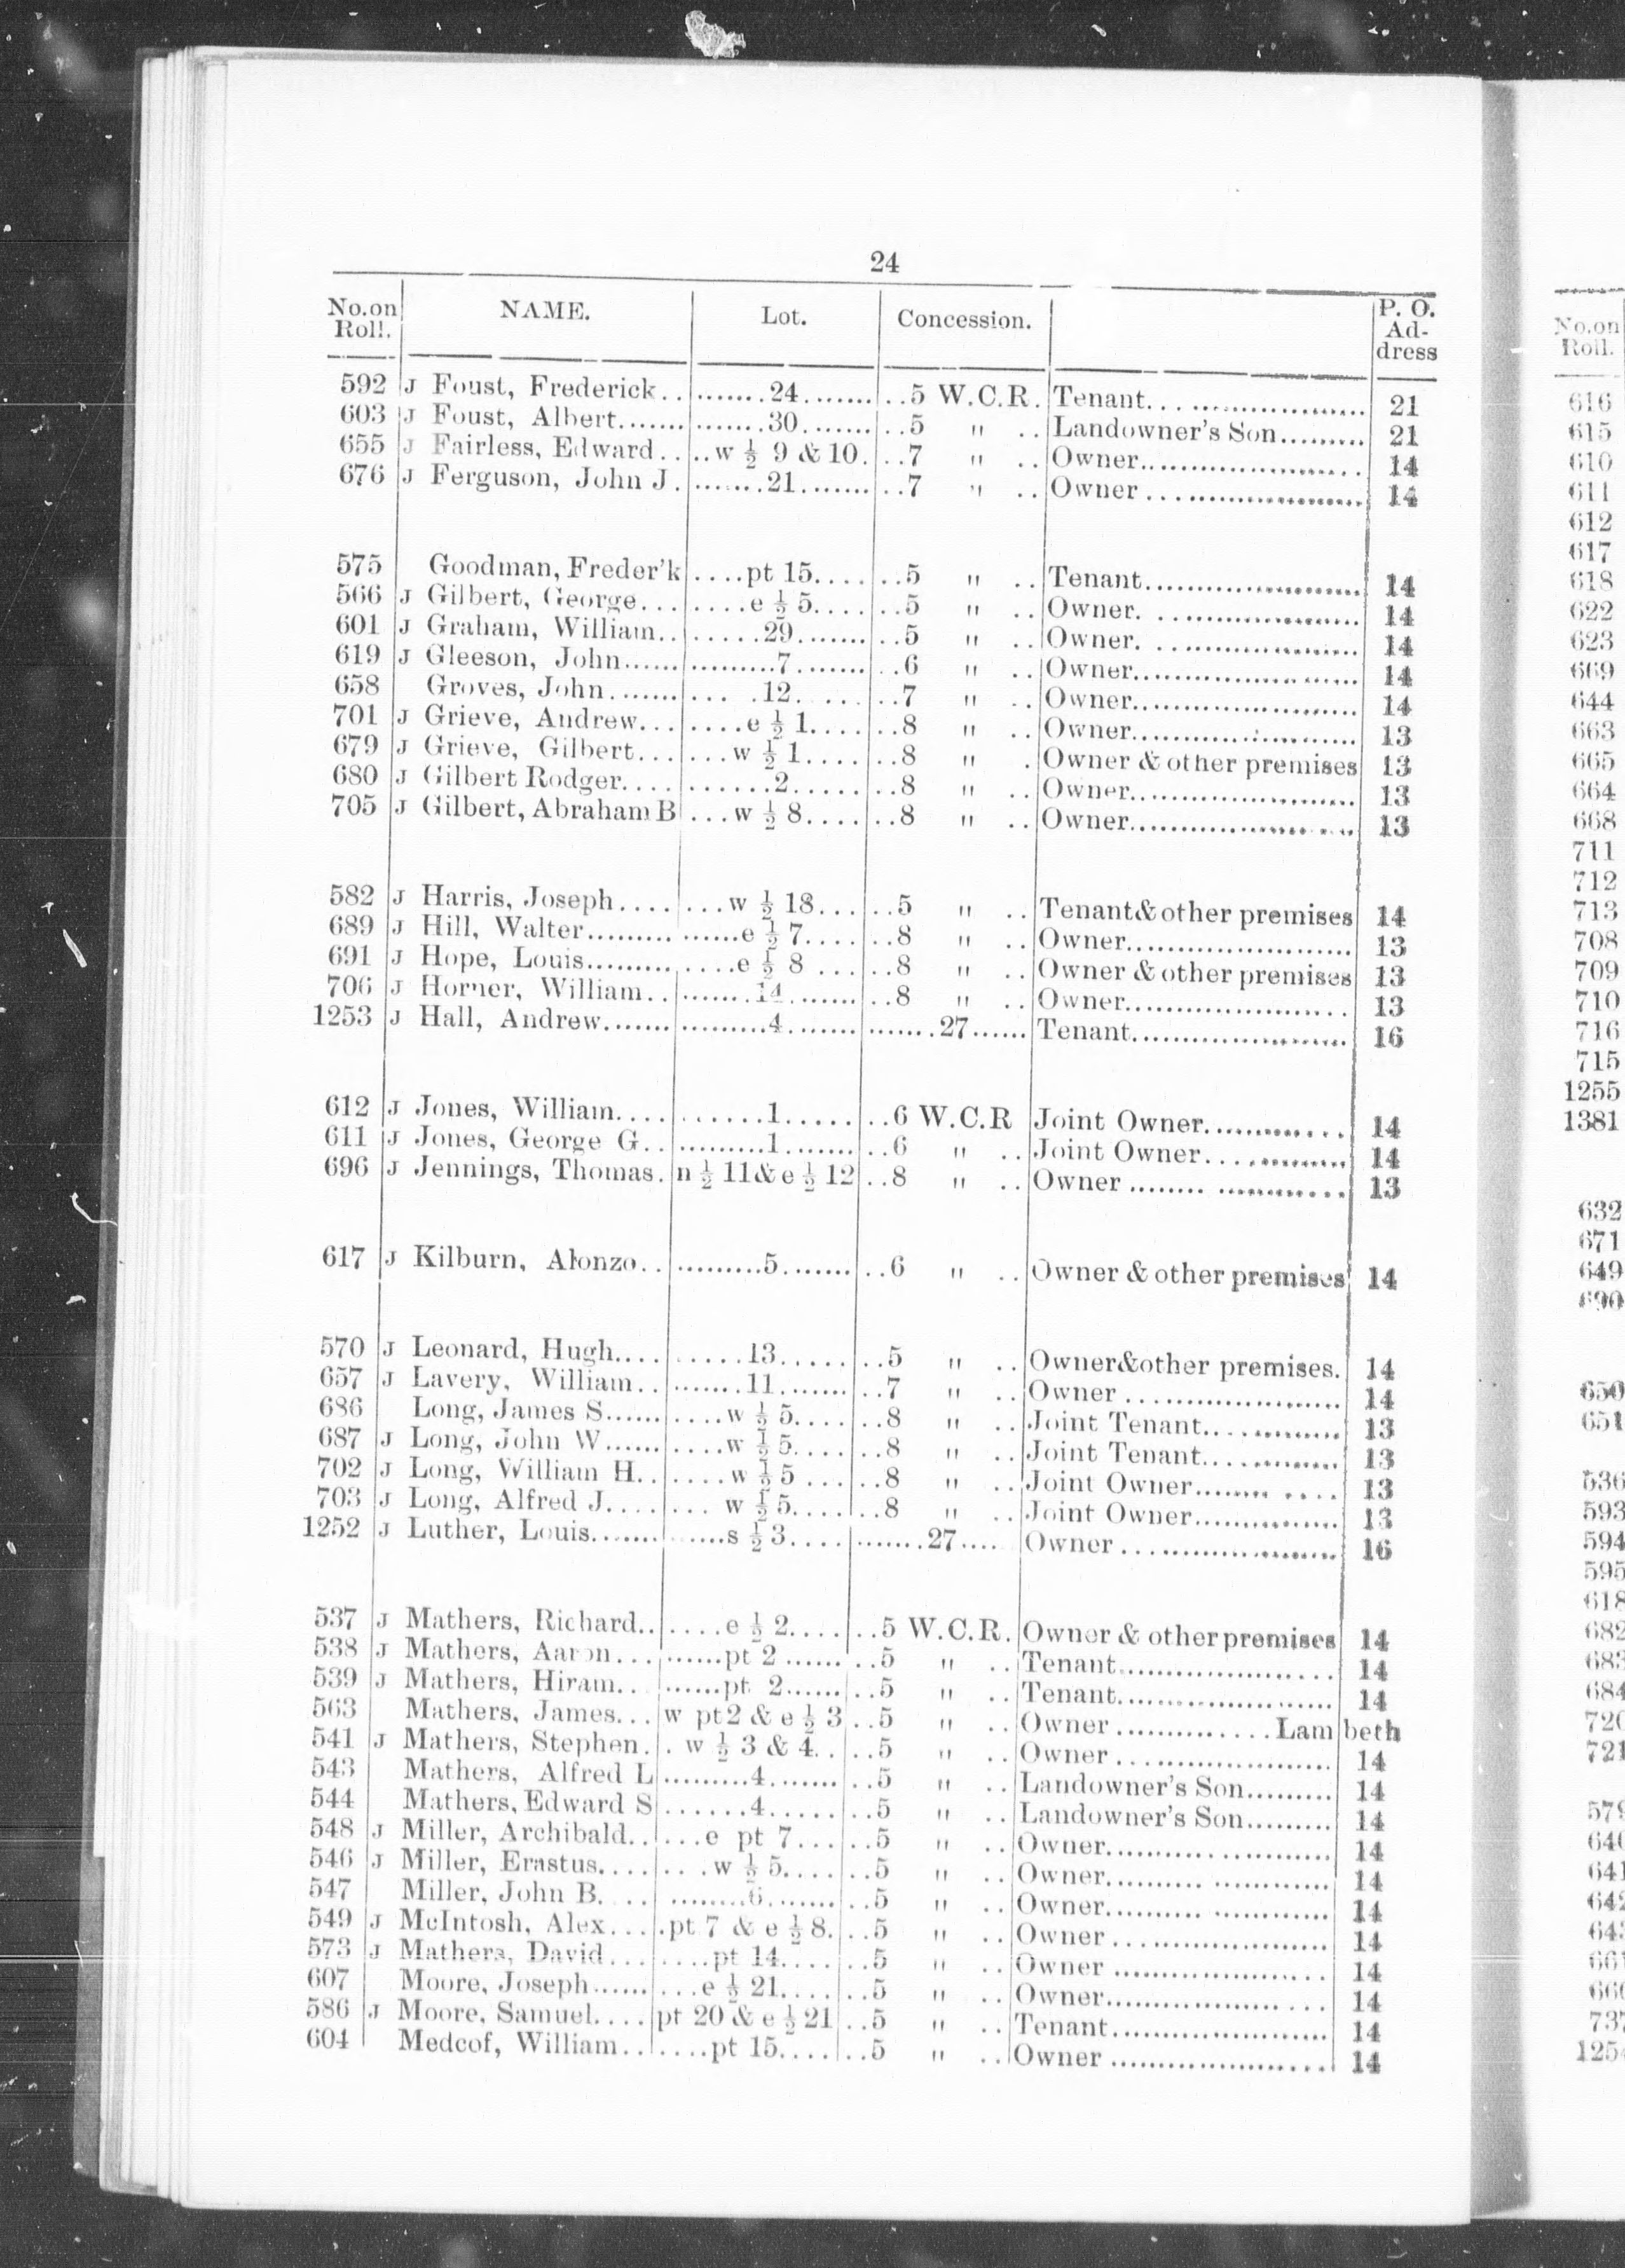 24
No.on Roll. NAME. Lot. Concession. P. O. Address
592 J Foust, Frederick.. .......24........ ..5 W.C.R. Tenant...................... 21
603 J Foust, Albert....... .......30........ ..5 " .. Landowner's Son......... 21
655 J Fairless, Edward.. ..w ½ 9 & 10. ..7 " .. Owner...................... 14
676 J Ferguson, John J. .......21........ ..7 " .. Owner...................... 14
575 Goodman, Freder'k ....pt 15.... ..5 " .. Tenant...................... 14
566 J Gilbert, George... ....e ½ 5.... ..5 " .. Owner...................... 14
601 J Graham, William.. .....29....... ..5 " .. Owner...................... 14
619 J Gleeson, John...... .........7........ ..6 " .. Owner...................... 14
658 Groves, John....... ... .12...... ..7 " .. Owner...................... 14
701 J Grieve, Andrew... ....e ½ 1.... ..8 " .. Owner...................... 13
679 J Grieve, Gilbert... ...w ½ 1.... ..8 " . Owner & other premises 13
680 J Gilbert Rodger.... ......2...... ..8 " .. Owner...................... 13
705 J Gilbert, Abraham B ...w ½ 8.... ..8 " .. Owner...................... 13
582 J Harris, Joseph.... ...w ½ 18... ..5 " .. Tenant & other premises 14
689 J Hill, Walter......... ......e ½ 7.... ..8 " .. Owner...................... 13
691 J Hope, Louis......... ....e ½ 8 ... ..8 " .. Owner & other premises 13
706 J Horner, William.. .......14....... ..8 " .. Owner...................... 13
1253 J Hall, Andrew....... .........4....... .......27...... Tenant...................... 16
612 J Jones, William.... .......1...... ..6 W.C.R Joint Owner............. 14
611 J Jones, George G.. .........1....... ..6 " .. Joint Owner............. 14
696 J Jennings, Thomas. n ½ 11 & e ½ 12 ..8 " .. Owner ...................... 13
617 J Kilburn, Alonzo.. .........5....... ..6 " .. Owner & other premises 14
570 J Leonard, Hugh.... ......13...... ..5 " .. Owner & other premises. 14
657 J Lavery, William.. .......11....... ..7 " .. Owner ...................... 14
686 Long, James S...... ....w ½ 5.... ..8 " .. Joint Tenant............. 13
687 J Long, John W...... ....w ½ 5.... ..8 " .. Joint Tenant............. 13
702 J Long, William H.. ....w ½ 5 ... ..8 " .. Joint Owner............. 13
703 J Long, Alfred J.... ... w ½ 5.... ..8 " .. Joint Owner............. 13
1252 J Luther, Louis....... ......s ½ 3.... .......27.... Owner ...................... 16
537 J Mathers, Richard.. ....e ½ 2.... ..5 W.C.R. Owner & other premises 14
538 J Mathers, Aaron... ......pt 2 ...... ..5 " .. Tenant...................... 14
539 J Mathers, Hiram... ......pt 2...... ..5 " .. Tenant...................... 14
563 Mathers, James... w pt 2 & e ½ 3 ..5 " .. Owner ..............Lambeth
541 J Mathers, Stephen. . w ½ 3 & 4.. ..5 " .. Owner ...................... 14
543 Mathers, Alfred L .........4....... ..5 " .. Landowner's Son......... 14
544 Mathers, Edward S ......4..... ..5 " .. Landowner's Son......... 14
548 J Miller, Archibald.. ...e pt 7... ..5 " .. Owner...................... 14
546 J Miller, Erastus.... ...w ½ 5.... ..5 " .. Owner...................... 14
547 Miller, John B. ... ........6....... ..5 " .. Owner...................... 14
549 J McIntosh, Alex... .pt 7 & e ½ 8. ..5 " .. Owner ...................... 14
573 J Mathers, David... ....pt 14.... ..5 " .. Owner ...................... 14
607 Moore, Joseph...... ...e ½ 21.... ..5 " .. Owner...................... 14
586 J Moore, Samuel.... pt 20 & e ½ 21 ..5 " .. Tenant...................... 14
604 Medcof, William.. ....pt 15.... ..5 " .. Owner ...................... 14
No.on Roll.
616
615
610
611
612
617
618
622
623
669
644
663
665
664
668
711
712
713
708
709
710
716
715
1255
1381
632
671
649
690
650
651
536
593
594
595
618
682
683
684